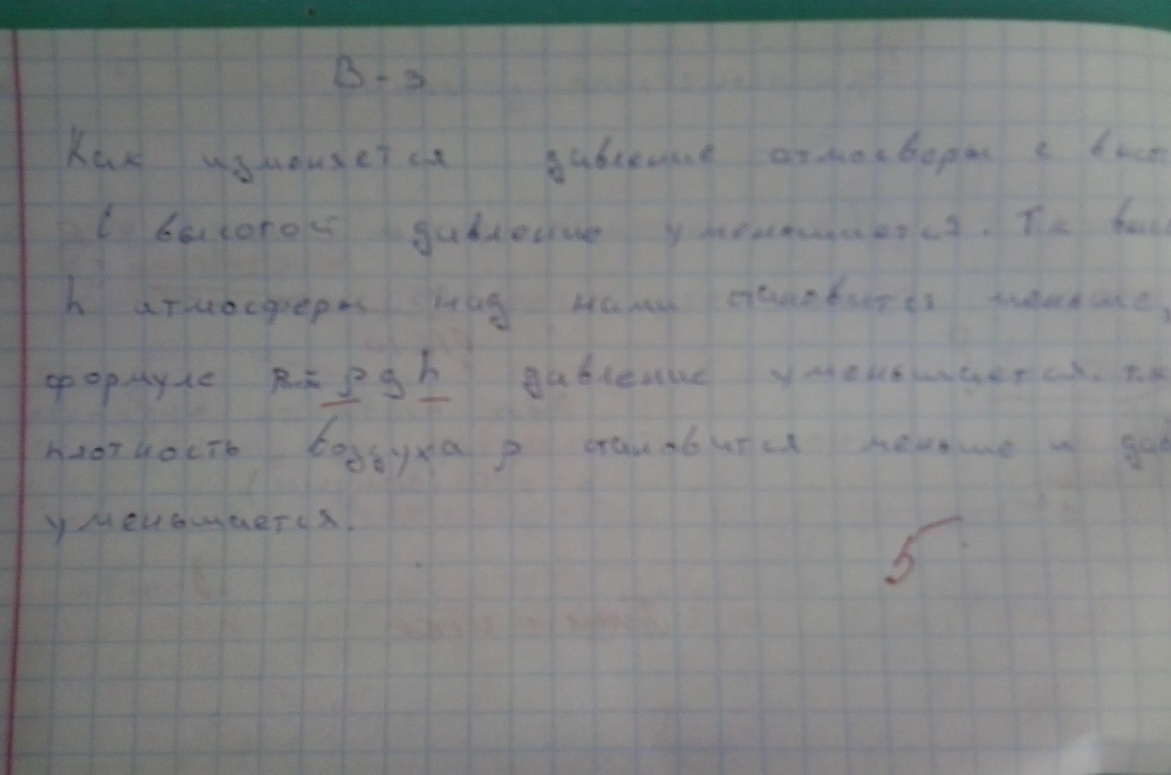 В-3
Как изменяется давление атмосверы с высо
С высотой давление уменьшается. Т.к выс
h атмосферы над нами становится меньше,
формуле P=ρgh давление уменьшается. т.к
плотность воздуха ρ становится меньше и дав
уменьшается.
5